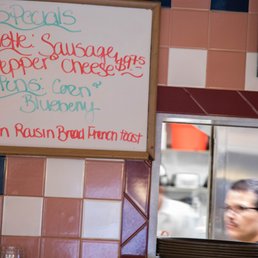 Specials
Sausage
epper Cheese $9.95
Corn
Blueberry
n Raisin Bread French toast